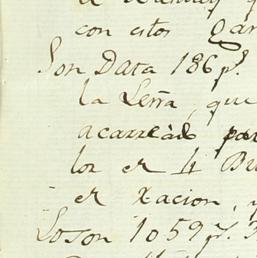 con estos gar
Son Data 186 ps.
la Leña, que
acarreado par
los en 4 Bu
en xacion, y
Loson 1059 ps. 3